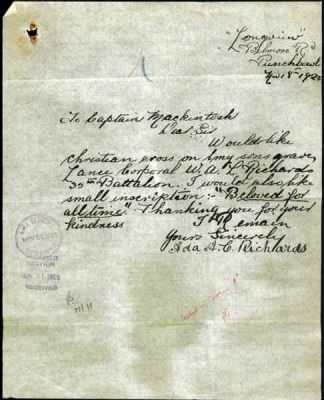 "Longview"
Belmore Rd
Punchbowl
To Captain Mackintosh
Dear Sir
Would like
christian cross on my sons grave,
Lance Corporal W. A. L. Richards
35th Battalion. I would also like
small inscription:- "Beloved for
all time" Thanking you for your
kindness
I Remain
Yours Sincerely
Ada A. C. Richards
RECEIVED